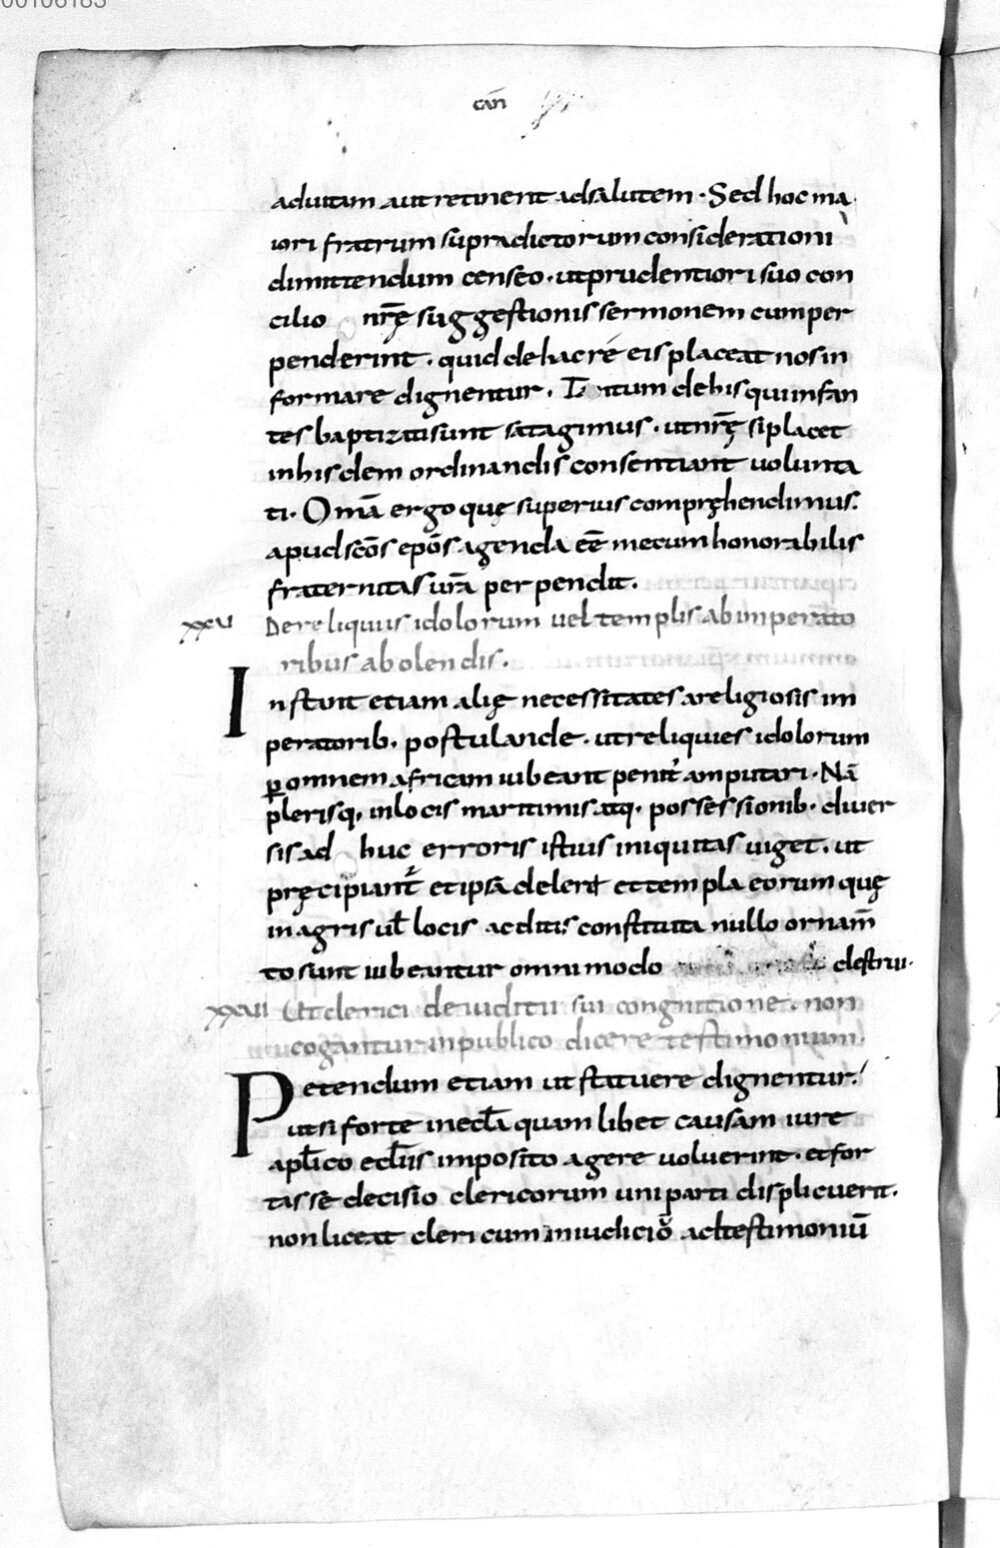 00106183
cañ
ad uitam aut retinent ad salutem · Sed hoc ma
iori fratrum supradictorum considerationi
dimittendum censeo · ut prudentiori suo con
cilio nr̄ę suggestionis sermonem cum per
penderint · quid de hac ré eis placeat nos in
formare dignentur · Tantum de his qui infan
tes baptizati sunt satagimus · ut nr̄ę si placet
in hisdem ordinandis consentiant uolunta
ti · Omā ergo quę superius compręhendimus ·
apud sc̄os ep̄os agenda eē mecum honorabilis
fraternitas ur̄a perpendit ·
xxvi De reliquiis idolorum uel templis ab imperato
ribus abolendis ·
Instant etiam alię necessitates a religiosis im
peratorib · postulande · ut reliquies idolorum
ꝑ omnem africam iubeant penit᾽ amputari · Nā
plerisq · in locis maritimis atq · possessionib · diuer
sis ad huc erroris istius iniquitas uiget · ut
pręcipiant̄ et ipsa deleri et templa eorum quę
in agris ul̄ locis acditis constituta nullo ornam̄
to sunt iubeantur omnimodo destrui ·
xxvii Ut clerici de iuditii sui congnitione · non
cogantur in publico dicere testimonium ·
Petendum etiam ut statuere dignentur ·
ut si forte in eccl̄a quam libet causam iure
apl̄ico eccl̄iis imposito agere uoluerint · et for
tasse decisio clericorum uni parti displicuerit ·
non liceat clericum in iudiciō ad testimoniū